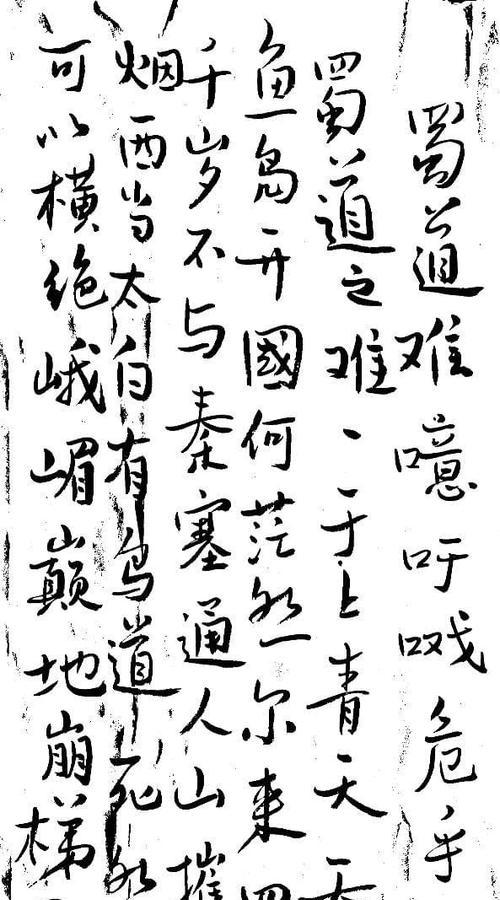 蜀道难噫吁戏危乎
蜀道之难丶于上青天
鱼凫开國何茫然尔来四
千岁不与秦塞通人山摧
烟西当太白有鸟道死然
可以横绝峨嵋巅地崩梯